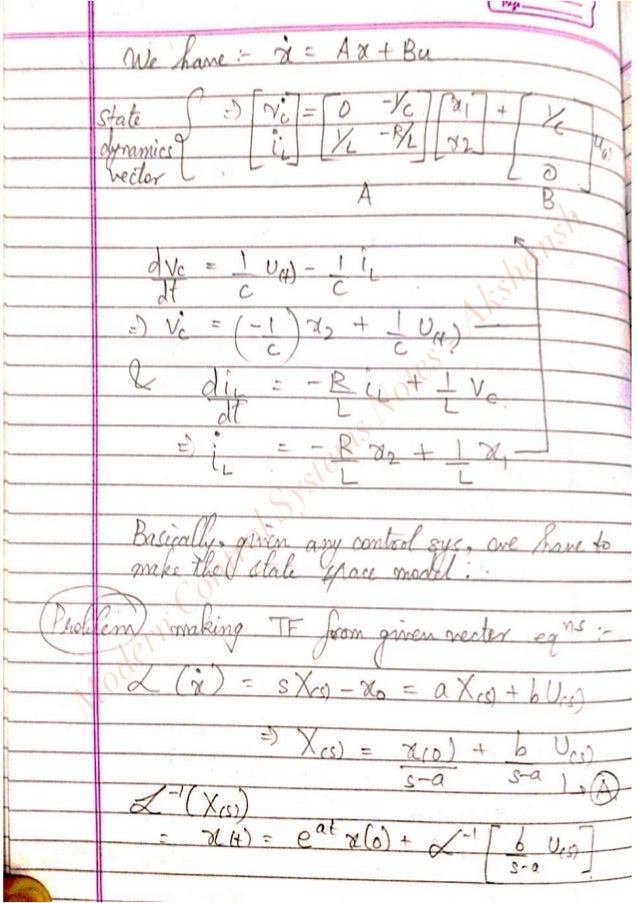 Page
We have :- ẋ = Ax + Bu
State dynamics vector { ⇒ [v̇c; i̇L] = [0 -1/C; 1/L -R/L] [x1; x2] + [1/C; 0] u(t)
A B
dVc/dt = 1/C U(t) - 1/C iL
⇒ V̇c = (-1/C) x2 + 1/C U(t)
& diL/dt = -R/L iL + 1/L Vc
⇒ i̇L = -R/L x2 + 1/L x1
Basically, given any control sys, we have to
make the state space model :.
Problem making TF from given vector eqns :-
ℒ (ẋ) = sX(s) - x0 = a X(s) + b U(s)
⇒ X(s) = x(0)/s-a + b/s-a U(s) ↳ A
ℒ⁻¹(X(s))
= x(t) = e^at x(0) + ℒ⁻¹ [b/s-a U(s)]
Modern Control Systems Notes - Akshansh